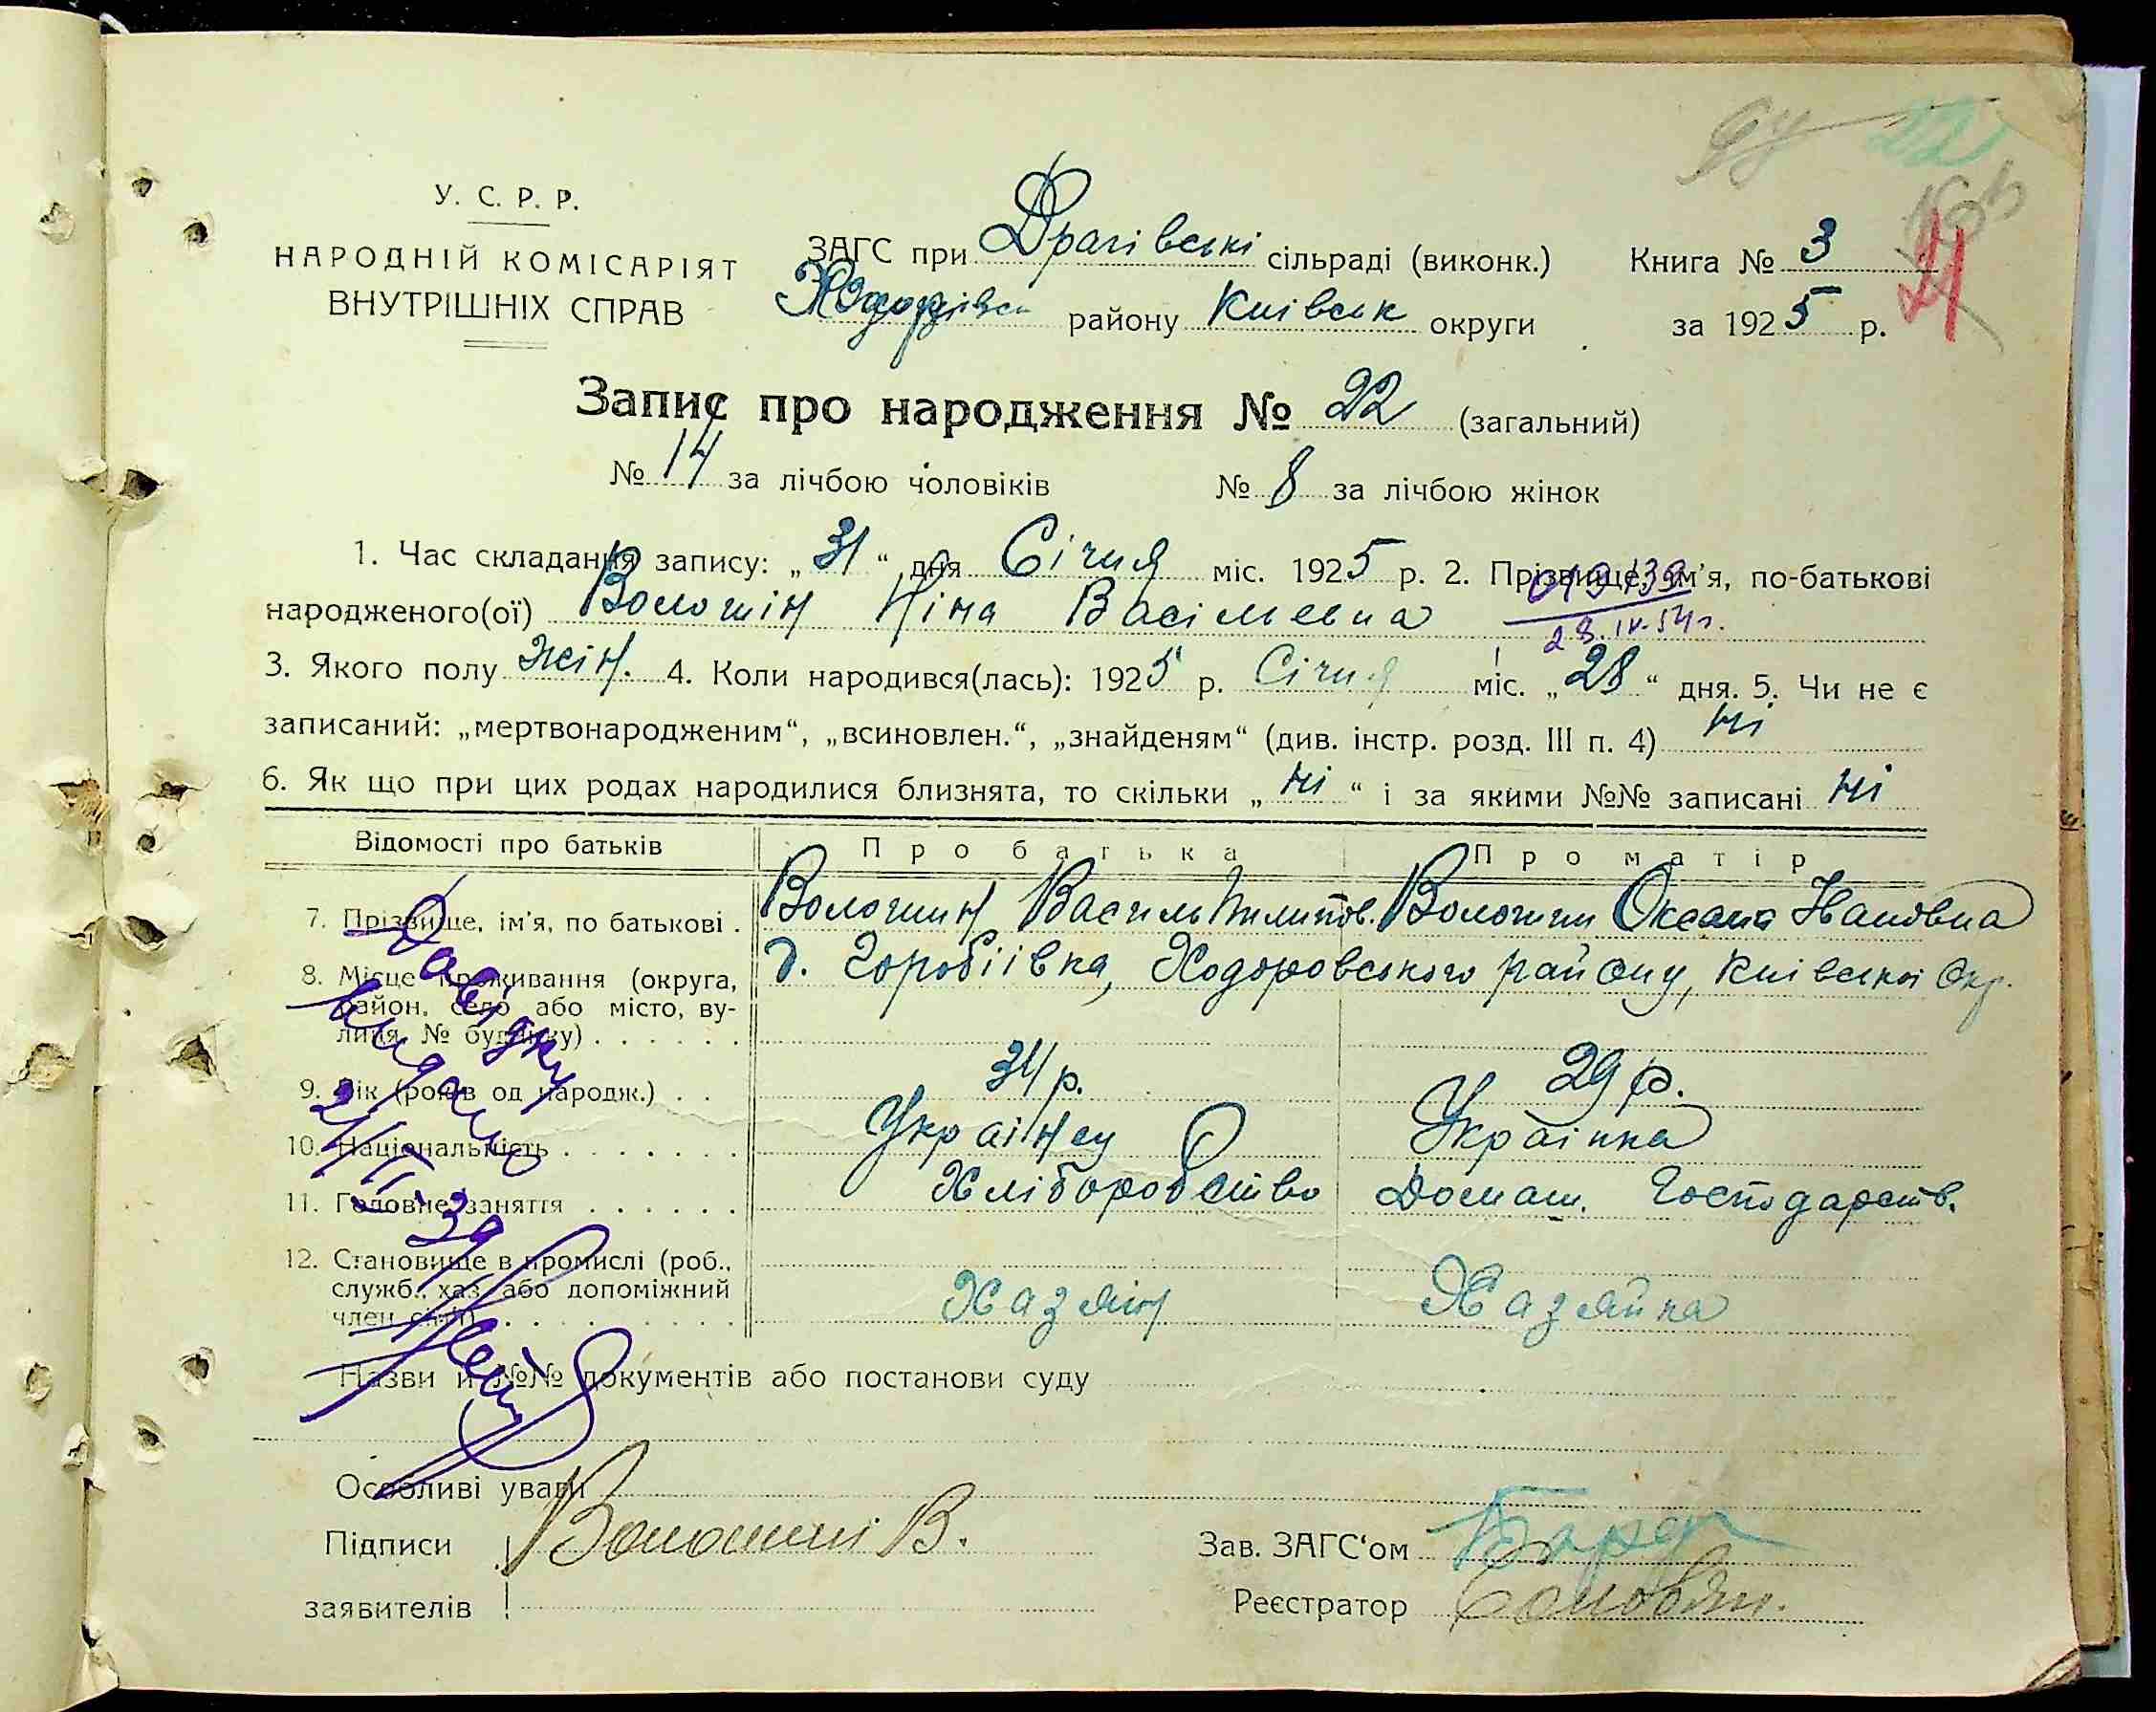 У. С. Р. Р.
НАРОДНІЙ КОМІСАРІЯТ
ВНУТРІШНІХ СПРАВ
ЗАГС при Драчівські сільраді (виконк.)
Ходорівськ району Київськ округи
Книга № 3
за 1925 р.
21
Запис про народження № 22 (загальний)
№ 14 за лічбою чоловіків № 8 за лічбою жінок
1. Час складання запису: „31“ дня Січня міс. 1925 р. 2. Прізвище, ім'я, по-батькові
народженого(ої) Волошін Ніна Васілевна
28.IV.54 г.
3. Якого полу жін. 4. Коли народився(лась): 1925 р. Січня міс. „28“ дня. 5. Чи не є
записаний: „мертвонародженим“, „всиновлен.“, „знайденям“ (див. інстр. розд. III п. 4) ні
6. Як що при цих родах народилися близнята, то скільки „ні“ і за якими №№ записані ні
Відомості про батьків Про батька Про матір
7. Прізвище, ім'я, по батькові . Волошин Василь Пилипов. Волошин Оксана Івановна
8. Місце проживання (округа, район, село або місто, вулиця, № будинку) . . . . . . д. Горобіівка, Ходоровського району, Київської Окр.
9. Вік (років од народж.) . . 34 р. 29 р.
10. Національність . . . . . . . Українец Українка
11. Головне заняття . . . . . . Хліборобство Домаш. Господарств.
12. Становище в промислі (роб., служб., хаз. або допоміжний член сім'ї) . . . . . . . . Хазяін Хазяйка
Довідку
видано
Назви й №№ документів або постанови суду
Особливі уваги
Підписи Волошин В.
заявителів
Зав. ЗАГС‘ом
Реєстратор